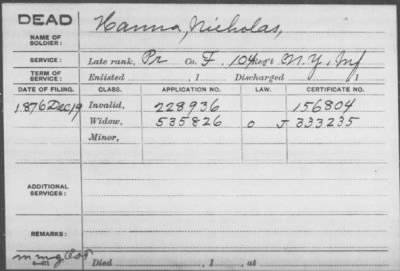 DEAD
NAME OF SOLDIER: Hanna, Nicholas,
SERVICE: Late rank, Pr Co. F, 104 Reg't N.Y. Inf
TERM OF SERVICE: Enlisted , 1 Discharged , 1
DATE OF FILING. CLASS. APPLICATION NO. LAW. CERTIFICATE NO.
1876 Dec, 19 Invalid, 228936 156804
Widow, 535826 O J 333235
Minor,
ADDITIONAL SERVICES:
REMARKS:
Died , 1 , at